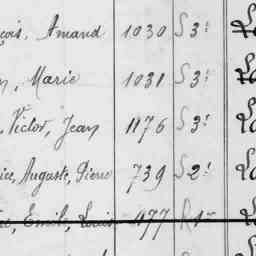 çois, Amand 1030 S 3e
, Marie 1031 S 3e
, Victor, Jean 1176 S 3e
ice, Auguste, Pierre 739 S 2e
, Emile, Louis 1177